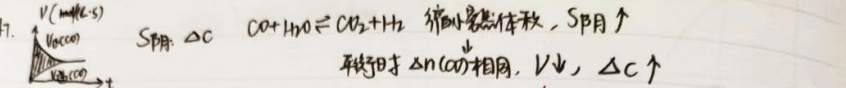 17.
V(mol/L·s)
V正(CO)
V逆(CO)
t
S阴: △C CO+H₂O⇌CO₂+H₂ 缩小容器体积, S阴↑
↓
平衡时 △n(CO)相同, V↓, △C↑